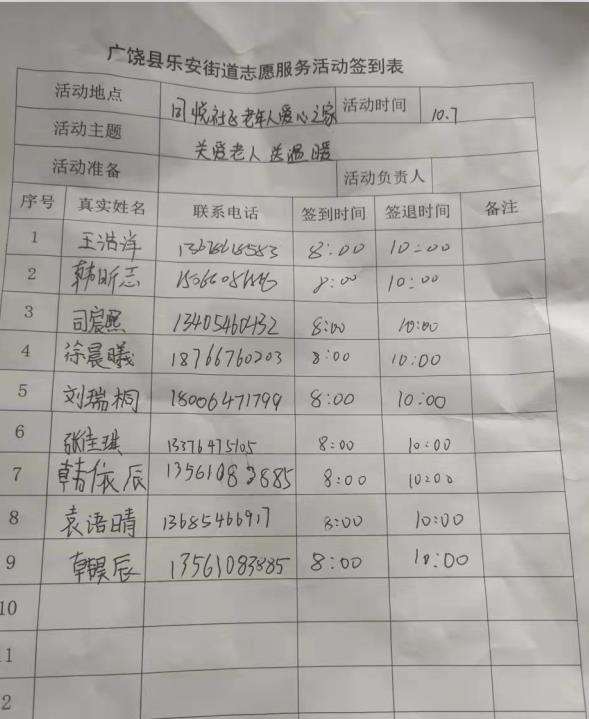 广饶县乐安街道志愿服务活动签到表
活动地点 同悦社区老年人爱心之家 活动时间 10.7
活动主题 关爱老人 送温暖
活动准备 活动负责人
序号 真实姓名 联系电话 签到时间 签退时间 备注
1 王浩洋 8:00 10:00
2 韩昕志 8:00 10:00
3 司宸熙 13405460432 8:00 10:00
4 徐晨曦 18766760203 8:00 10:00
5 刘瑞桐 18006471799 8:00 10:00
6 张佳琪 13376475105 8:00 10:00
7 韩依辰 13561083885 8:00 10:00
8 袁语晴 13685466917 8:00 10:00
9 韩昊辰 13561083885 8:00 10:00
10
11
2